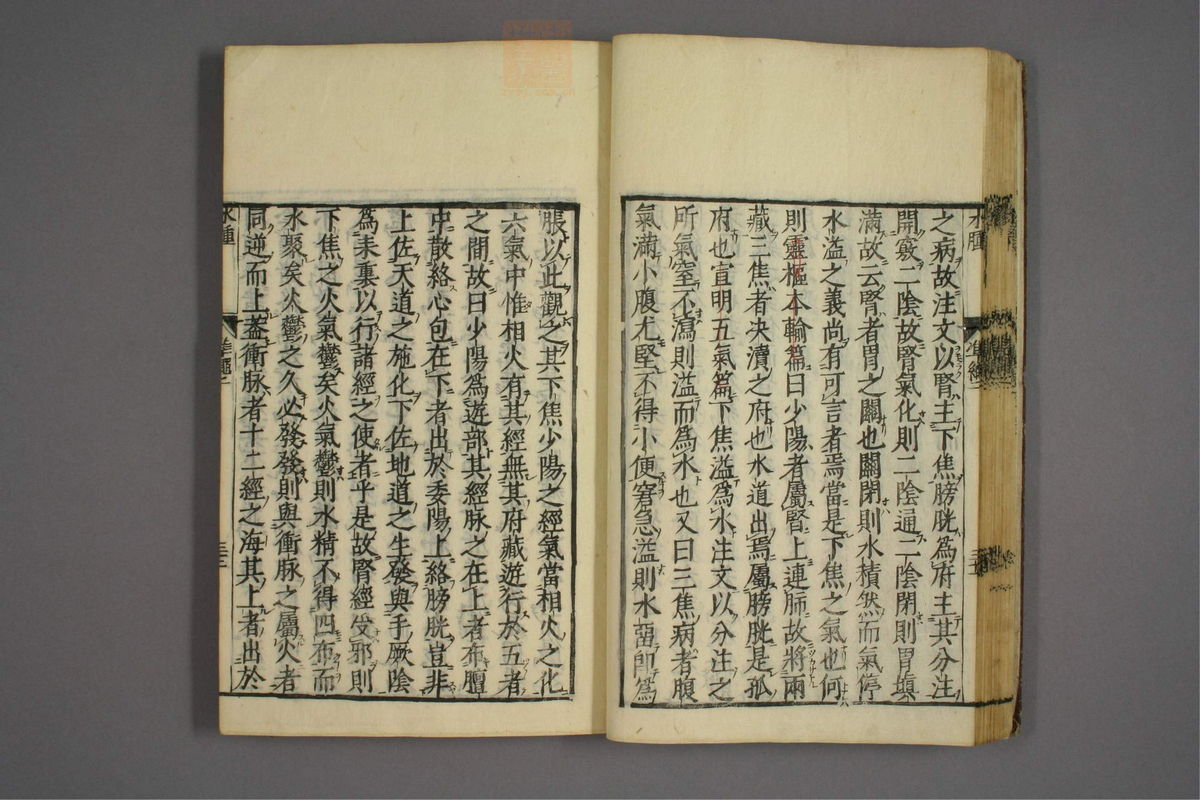 水腫
之病故注文以腎主下焦膀胱為府主其分注
開竅二陰故腎氣化則二陰通二陰閉則胃塡
滿故云腎者胃之關也關閉則水積然而氣停
水溢之義尚有可言者焉當是下焦之氣也何
則靈樞本輸篇曰少陽者屬腎上連肺故將兩
藏三焦者决瀆之府也水道出焉屬膀胱是孤
府也宣明五氣篇下焦溢為水注文以分注之
所氣窒不瀉則溢而為水也又曰三焦病者腹
氣滿小腹尤堅不得小便窘急溢則水畱卽為
脹以此觀之其下焦少陽之經氣當相火之化
六氣中惟相火有其經無其府藏遊行於五者
之間故曰少陽為遊部其經脉之在上者布膻
中散絡心包在下者出於委陽上絡膀胱豈非
上佐天道之施化下佐地道之生發與手厥陰
為表裏以行諸經之使者乎是故腎經受邪則
下焦之火氣鬱矣火氣鬱則水精不得四布而
水聚矣火鬱之久必發發則與衝脉之屬火者
同逆而上蓋衝脉者十二經之海其上者出於
水腫